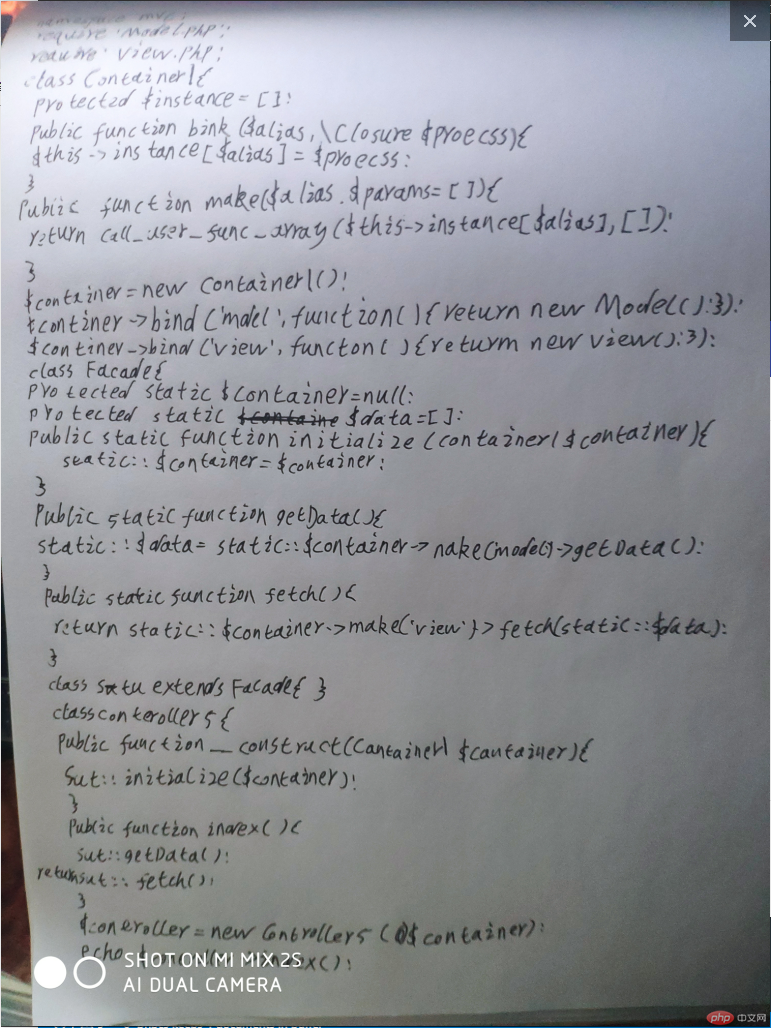 namespace mvc;
require 'Model.php';
require 'view.php;
class Container1{
protected $instance=[]:
Public function bink($alias,\Closure $proecss){
$this->instance[$alias]=$proecss:
}
Public function make($alias.$params=[]){
return call_user_func_array($this->instance[$alias],[]):
}
$container=new Container1():
$continer->bind('model',function(){return new Model():}):
$continer->bind('view',functon(){return new view():}):
class Facade{
protected static $Container=null:
protected static $data=[]:
Public static function initialize(container1 $container){
static::$container=$container:
}
Public static function getData(){
static::$data=static::$container->make(model)->getData():
}
Public static function fetch(){
return static::$container->make('view')>fetch(static::$data):
}
class sutu extends Facade{ }
class conteroller5{
Public function __construct(Cantainer1 $cantainer){
Sut::initialize($container):
}
Public function index(){
sut::getData():
return sut::fetch():
}
$coneroller=new Controller5($container):
echo
SHOT ON MI MIX 2S
AI DUAL CAMERA
php 中文网